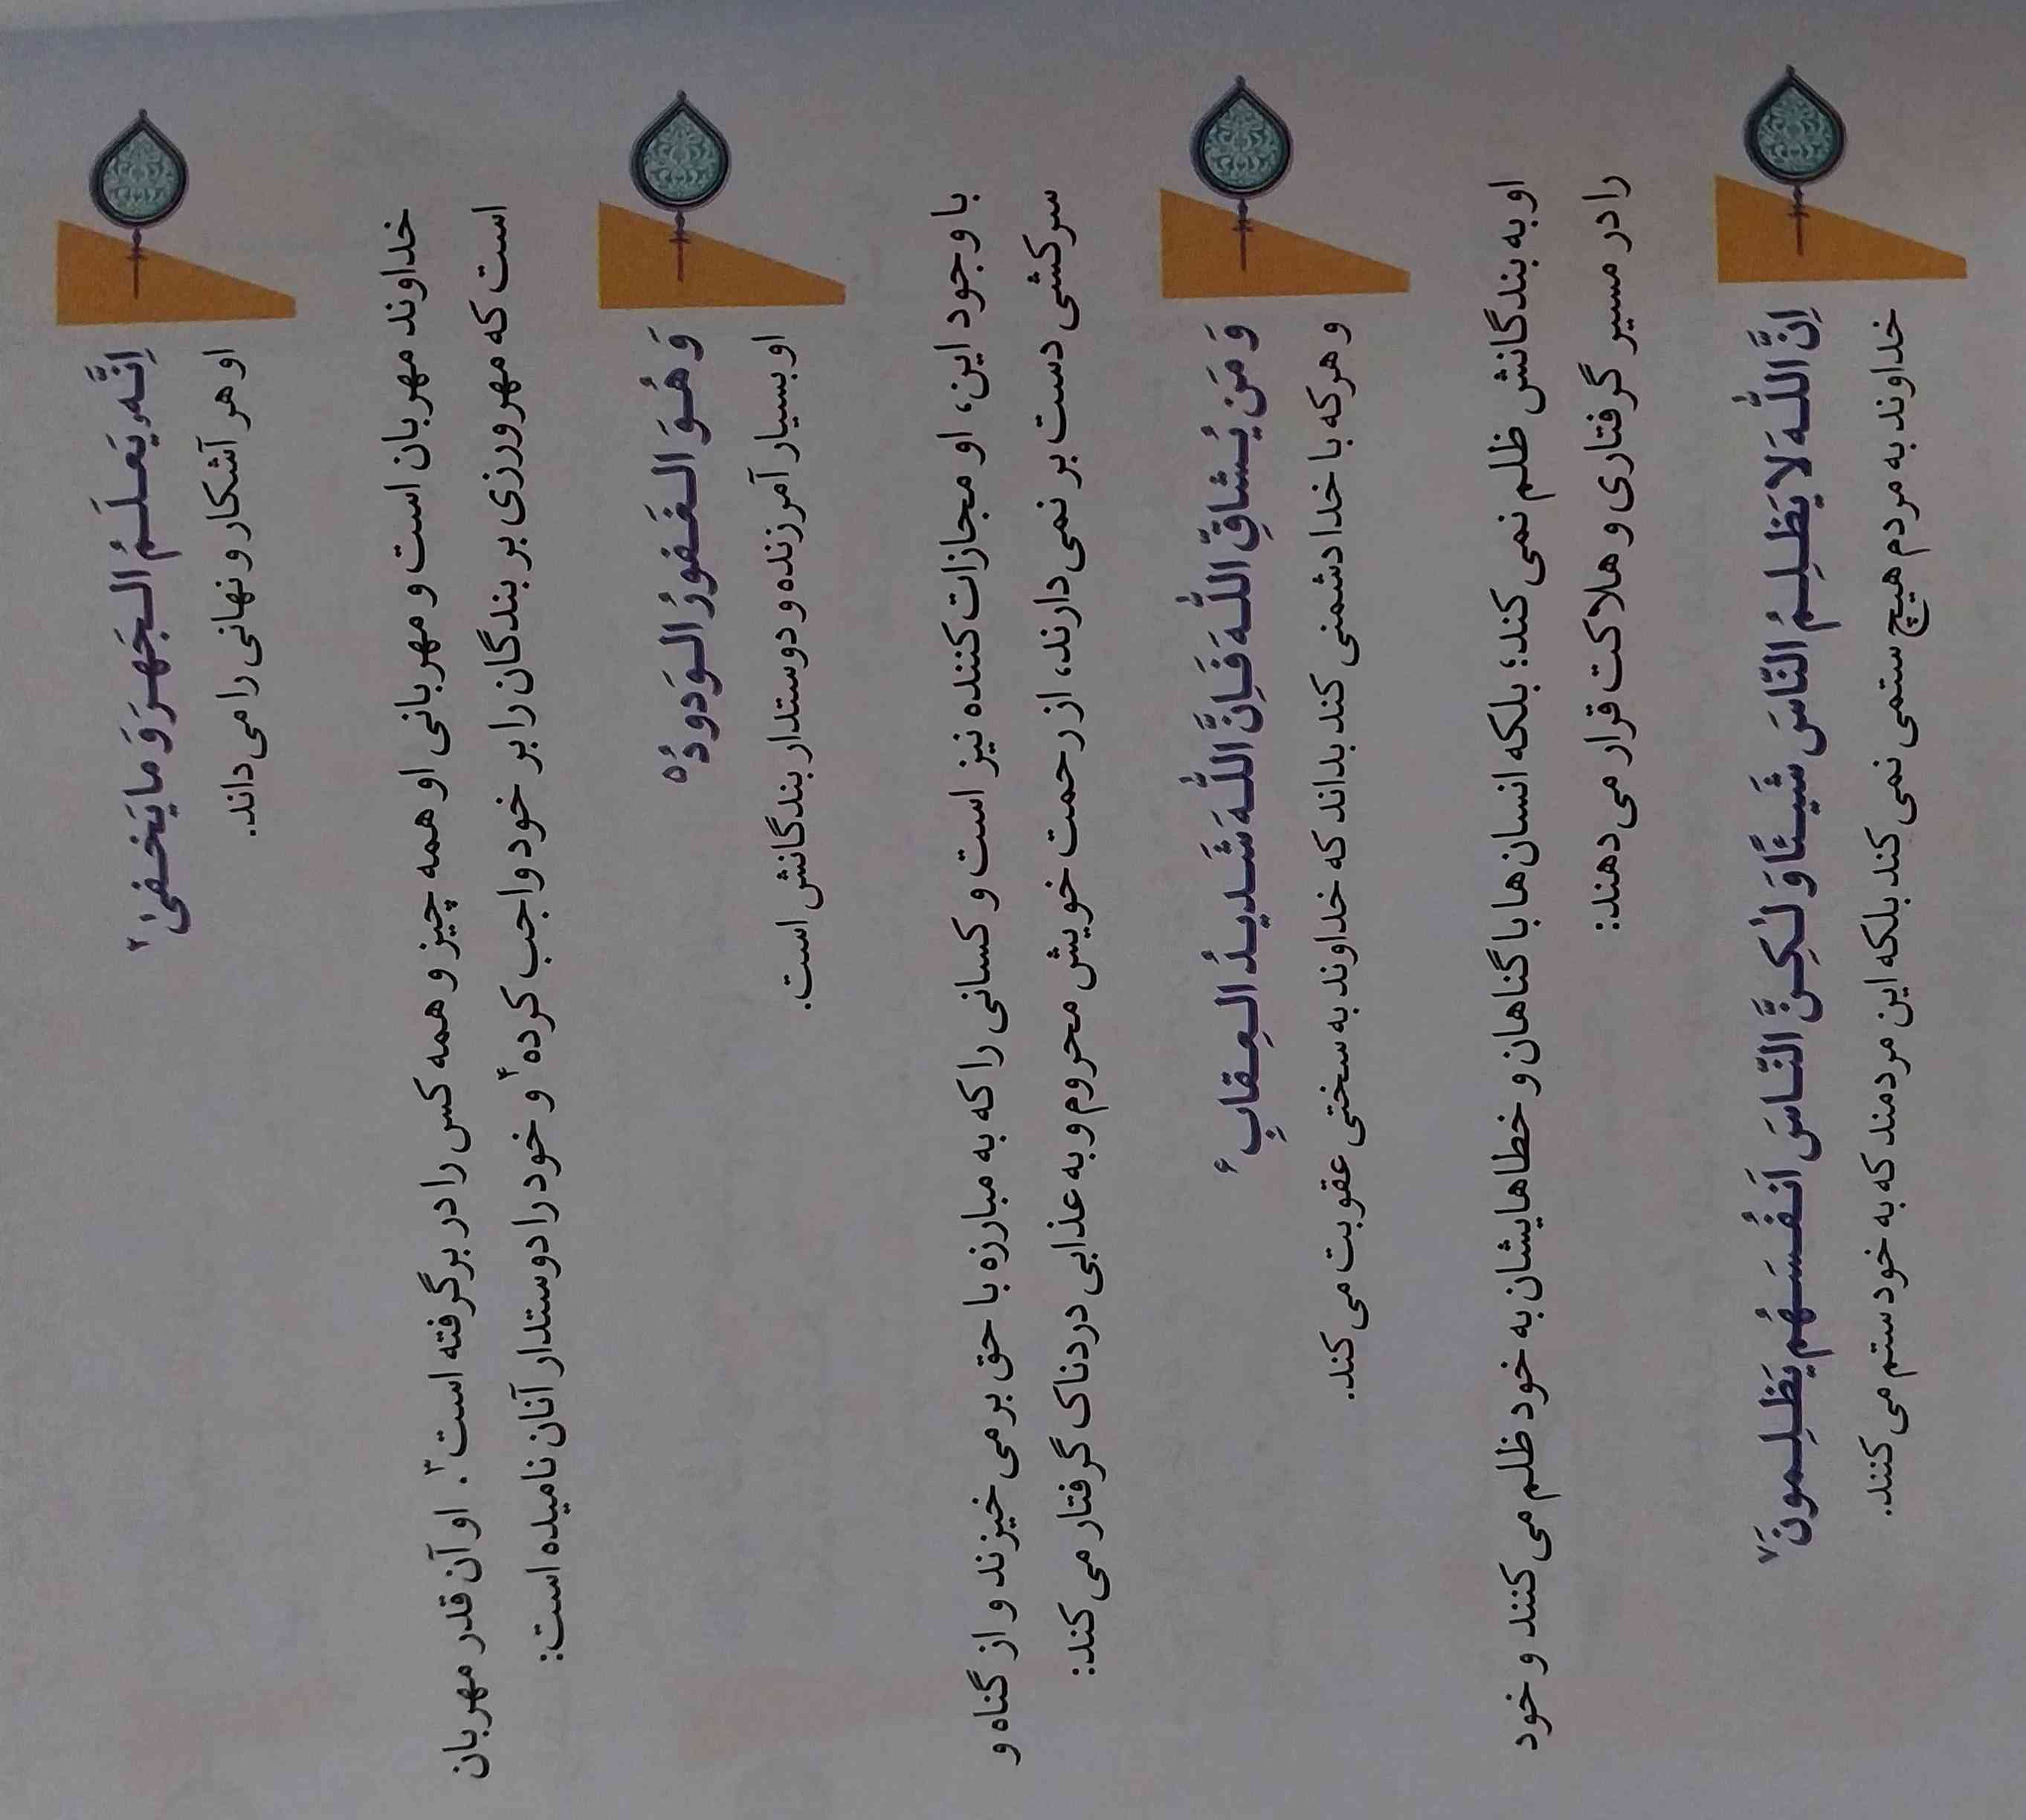 اِنَّهُ یَعلَمُ الجَهرَ وَ ما یَخفیٰ ۲
او هر آشکار و نهانی را می‌داند.
خداوند مهربان است و مهربانی او همه چیز و همه کس را در بر گرفته است۳. او آن قدر مهربان
است که مهرورزی بر بندگان را بر خود واجب کرده۴ و خود را دوستدار آنان نامیده است:
وَ هُوَ الغَفورُ الوَدودُ ۵
او بسیار آمرزنده و دوستدار بندگانش است.
با وجود این، او مجازات کننده نیز است و کسانی را که به مبارزه با حق بر می‌خیزند و از گناه و
سرکشی دست بر نمی‌دارند، از رحمت خویش محروم و به عذابی دردناک گرفتار می‌کند:
وَ مَن یُشاقِّ اللّٰهَ فَاِنَّ اللّٰهَ شَدیدُ العِقابِ ۶
و هرکه با خدا دشمنی کند بداند که خداوند به سختی عقوبت می‌کند.
او به بندگانش ظلم نمی‌کند؛ بلکه انسان‌ها با گناهان و خطاهایشان به خود ظلم می‌کنند و خود
را در مسیر گرفتاری و هلاکت قرار می‌دهند:
اِنَّ اللّٰهَ لا یَظلِمُ النّاسَ شَیـئًا وَ لٰکِنَّ النّاسَ اَنفُسَهُم یَظلِمونَ ۷
خداوند به مردم هیچ ستمی نمی‌کند بلکه این مردمند که به خود ستم می‌کنند.